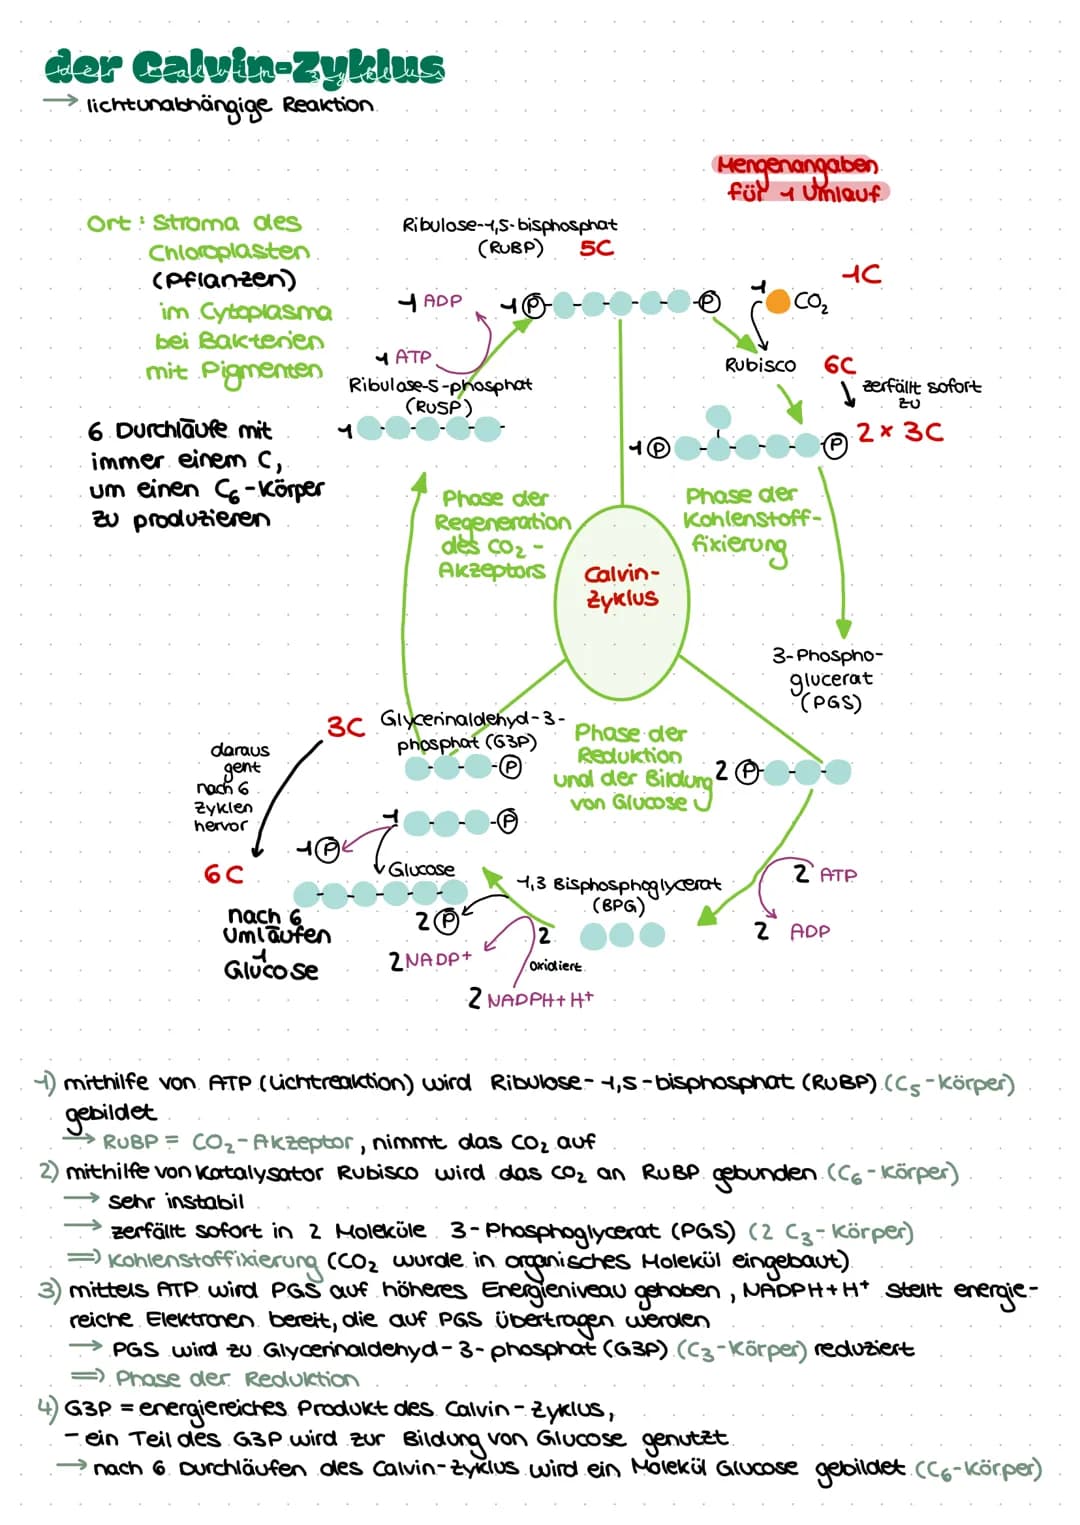 der Calvin-Zyklus
→ lichtunabhängige Reaktion
Mengenangaben
für 1 Umlauf
Ort: Stroma des
Chloroplasten
(Pflanzen)
im Cytoplasma
bei Bakterien
mit Pigmenten
6 Durchläufe mit
immer einem C,
um einen C₆-Körper
zu produzieren
Ribulose-1,5-bisphosphat
(RuBP) 5C
1 ADP
1 P
P
1
CO₂
1C
1 ATP
Ribulose-5-phosphat
(RUSP)
1
Rubisco
6C
zerfällt sofort
zu
2 x 3C
1 P
P
Phase der
Regeneration
des CO₂-
Akzeptors
Phase der
Kohlenstoff-
fixierung
Calvin-
Zyklus
3-Phospho-
glucerat
(PGS)
3C
Glycerinaldehyd-3-
phosphat (G3P)
P
daraus
geht
nach 6
Zyklen
hervor
Phase der
Reduktion
und der Bildung
von Glucose
2 P
1
P
1 P
6C
Glucose
nach 6
Umläufen
1
Glucose
2 P
1,3 Bisphosphoglycerat
(BPG)
2 ATP
2 ADP
2
oxidiert
2 NADP+
2 NADPH+H+
1) mithilfe von ATP (Lichtreaktion) wird Ribulose-1,5-bisphosphat (RuBP) (C₅-Körper)
gebildet
→ RUBP = CO₂-Akzeptor, nimmt das CO₂ auf
2) mithilfe von Katalysator Rubisco wird das CO₂ an RuBP gebunden (C₆-Körper)
→ sehr instabil
→ zerfällt sofort in 2 Moleküle 3-Phosphoglycerat (PGS) (2 C₃-Körper)
⇒ Kohlenstoffixierung (CO₂ wurde in organisches Molekül eingebaut)
3) mittels ATP wird PGS auf höheres Energieniveau gehoben, NADPH+H⁺ stellt energie-
reiche Elektronen bereit, die auf PGS übertragen werden
→ PGS wird zu Glycerinaldehyd-3-phosphat (G3P) (C₃-Körper) reduziert
⇒ Phase der Reduktion
4) G3P = energiereiches Produkt des Calvin-Zyklus,
- ein Teil des G3P wird zur Bildung von Glucose genutzt
→ nach 6 Durchläufen des Calvin-Zyklus wird ein Molekül Glucose gebildet (C₆-Körper)